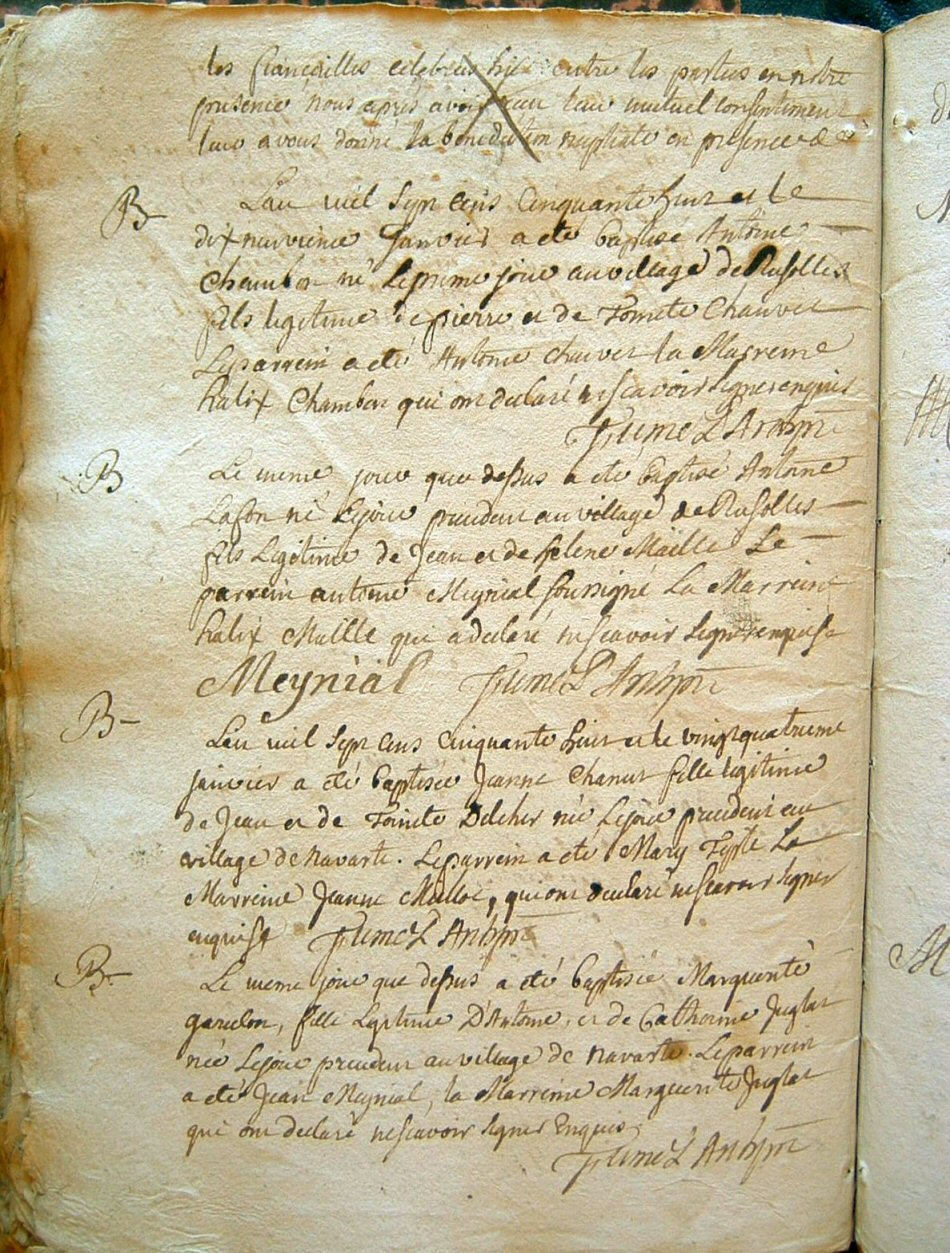 les fiançailles celebrées hier entre les parties en notre
presence nous apres avoir leur mutuel consentement
leur avons donné la benediction nuptiale en presence de
B L'an mil sept cens cinquante huit et le
dixneuvieme Janvier a eté baptisé Antoine
Chambon né le jour au village de Rusolles
fils legitime de pierre et de Toinete Chauvet
Le parrein a eté Antoine chauvet la Marreine
halix Chambon qui ont declaré ne scavoir signer enquis
B Le meme jour que dessus a eté baptisé Antoine
Lafon né le jour precedent au village de Rusolles
fils Legitime de Jean et de helene Maille Le
parrein antoine Meynial soussigné La Marreine
halix Maille qui a declaré ne scavoir signer enquise
Meynial
B L'an mil sept cens cinquante huit et le vingt quatrieme
janvier a eté baptisée Jeanne Chanut fille legitime
de Jean et de Toinete Delcher née Le jour precedent au
village de navarte. Le parrein a eté Mary La
Marreine Jeanne qui ont declaré ne scavoir signer
enquis
B Le meme jour que dessus a eté baptisée Marguerite
fille Legitime D'Antoine, et de Catherine Juglar
née Le jour precedent au village de navarte. Le parrein
a eté Jean Meynial, la Marreine Marguerite Juglar
qui ont declaré ne scavoir signer Enquis